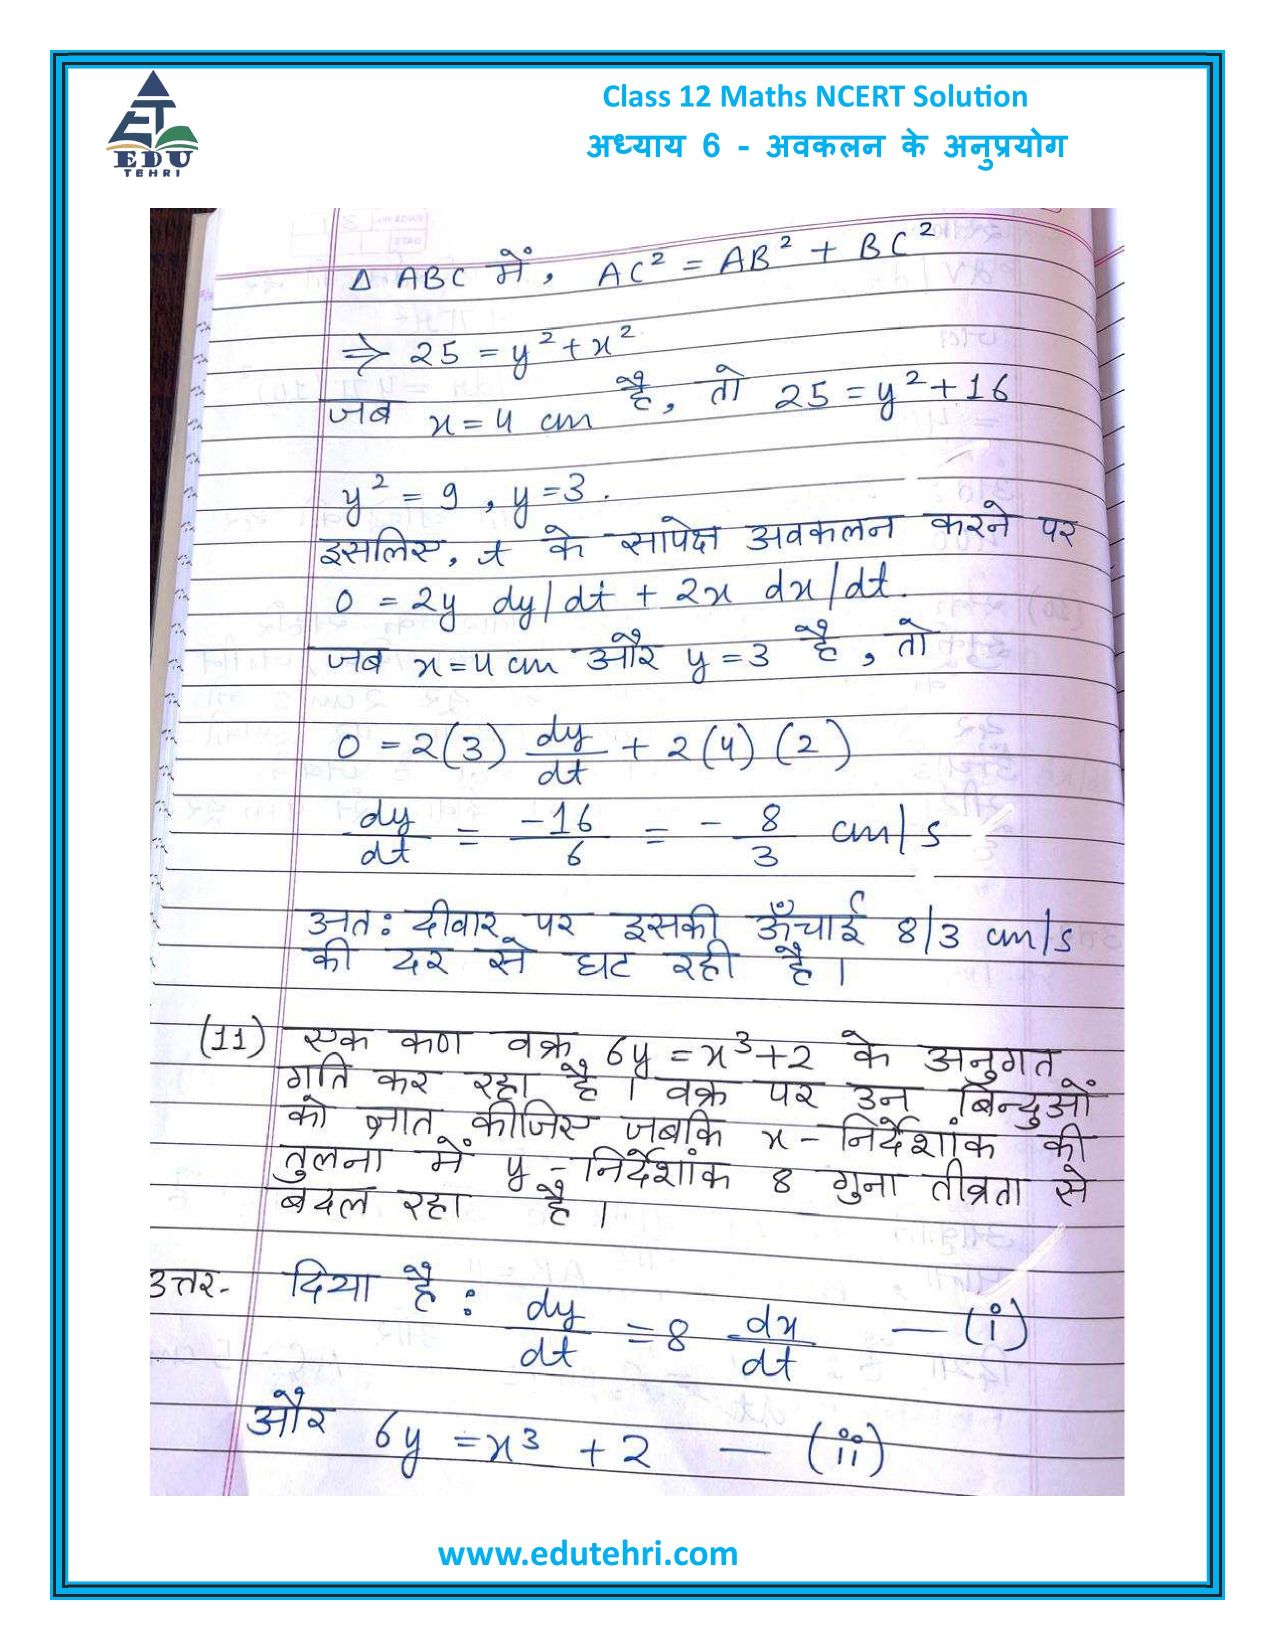 Class 12 Maths NCERT Solution
अध्याय 6 - अवकलन के अनुप्रयोग
ET
EDU
TEHRI
Δ ABC में, AC² = AB² + BC²
⇒ 25 = y² + x²
जब x = 4 cm है, तो 25 = y² + 16
y² = 9, y = 3.
इसलिए, t के सापेक्ष अवकलन करने पर
0 = 2y dy/dt + 2x dx/dt.
जब x = 4 cm और y = 3 है, तो
0 = 2(3) dy/dt + 2(4) (2)
dy/dt = -16/6 = -8/3 cm/s
अतः दीवार पर इसकी ऊँचाई 8/3 cm/s
की दर से घट रही है।
(11) एक कण वक्र 6y = x³ + 2 के अनुगत
गति कर रहा है। वक्र पर उन बिन्दुओं
को ज्ञात कीजिए जबकि x - निर्देशांक की
तुलना में y - निर्देशांक 8 गुना तीव्रता से
बदल रहा है।
उत्तर- दिया है: dy/dt = 8 dx/dt — (i)
और 6y = x³ + 2 — (ii)
www.edutehri.com